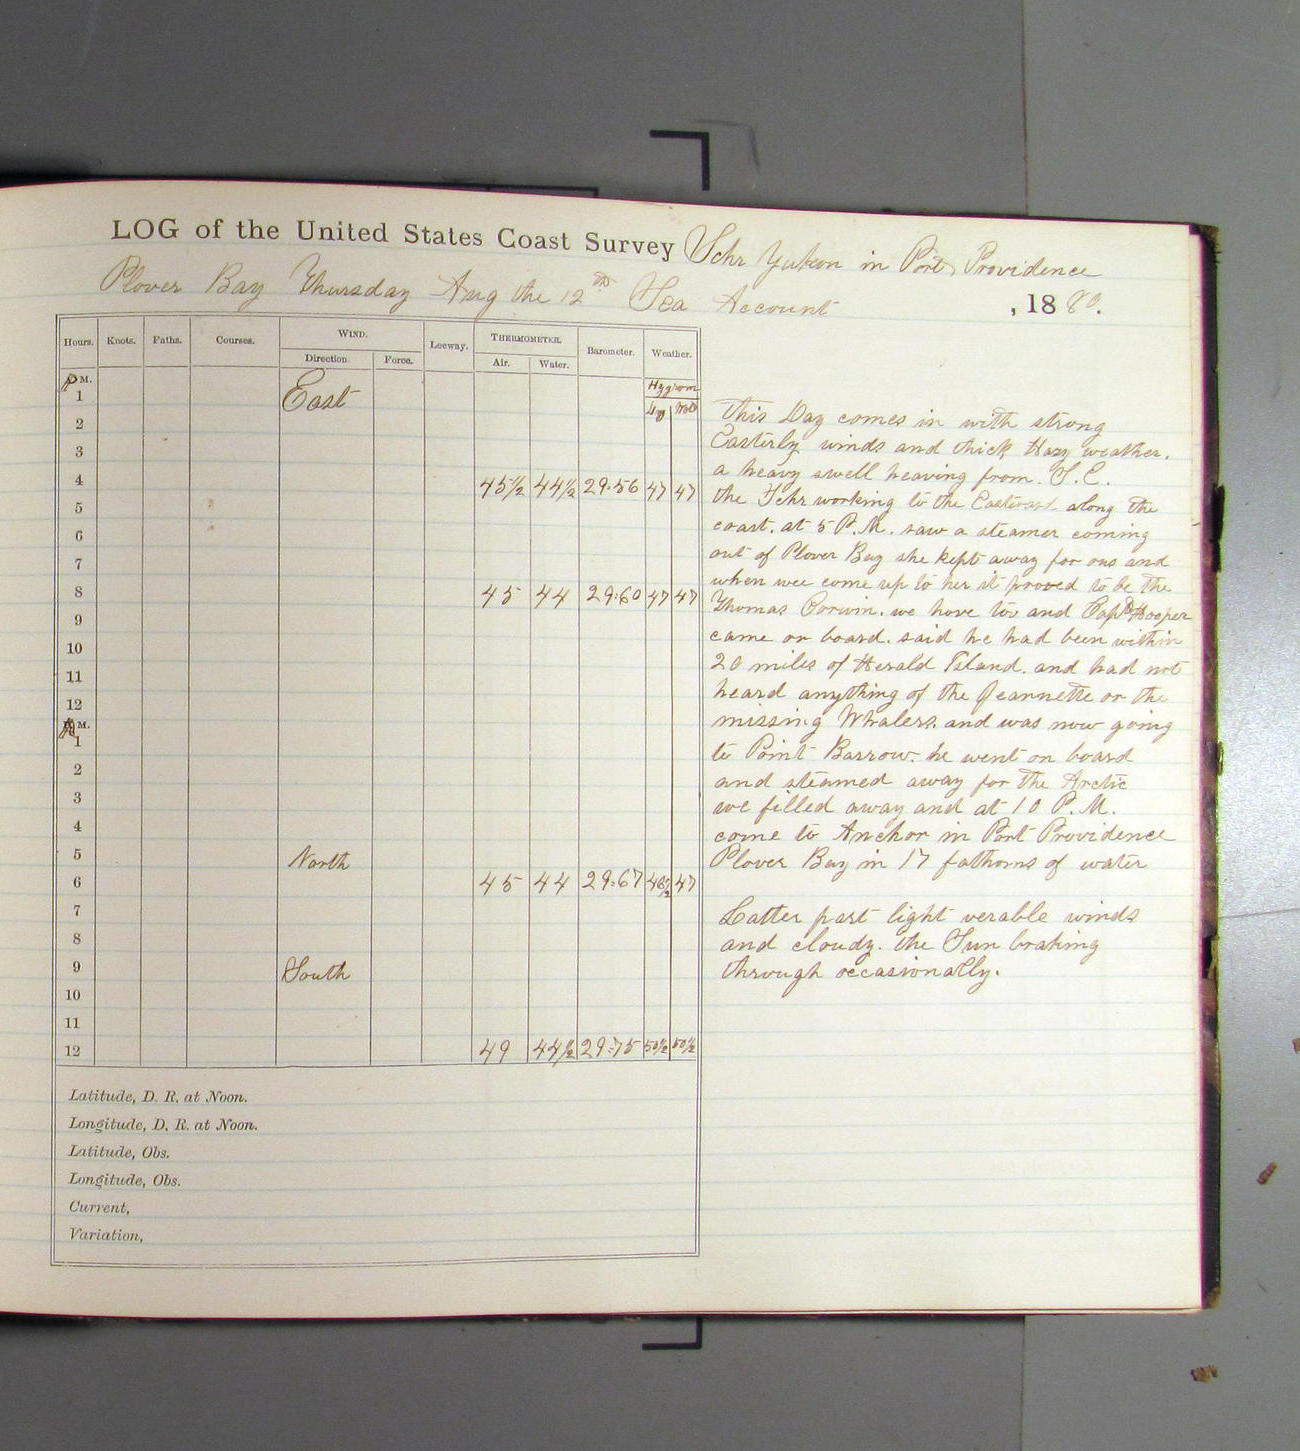 LOG of the United States Coast Survey Schr Yukon in Port Providence
Plover Bay Thursday Aug the 12th Sea Account , 1880.
Hours. Knots. Faths. Courses. WIND. Leeway. THERMOMETER. Barometer. Weather.
Direction. Force. Air. Water.
P M. Hygrom
1 East Dry Wet
2
3
4 45½ 44½ 29.56 47 47
5
6
7
8 45 44 29.60 47 47
9
10
11
12
A M.
1
2
3
4
5 North
6 45 44 29.67 48½ 47
7
8
9 South
10
11
12 49 44½ 29.75 50½ 50½
Latitude, D. R. at Noon.
Longitude, D. R. at Noon.
Latitude, Obs.
Longitude, Obs.
Current,
Variation,
This Day comes in with strong
Easterly winds and thick Hazy weather.
a heavy swell heaving from S.E.
the Schr working to the Eastward along the
coast. at 5 P.M. saw a steamer coming
out of Plover Bay she kept away for ous and
when wee come up to her it proved to be the
Thomas Corwin. we hove too and Capt Hooper
came on board. said he had been within
20 miles of Herald Island. and had not
heard anything of the Jeannette or the
missing Whalers. and was now going
to Point Barrow. he went on board
and steamed away for the Arctic
we filled away and at 10 P.M.
come to Anchor in Port Providence
Plover Bay in 17 fathoms of water
Latter part light verable winds
and cloudy. the Sun braking
through occasionally.